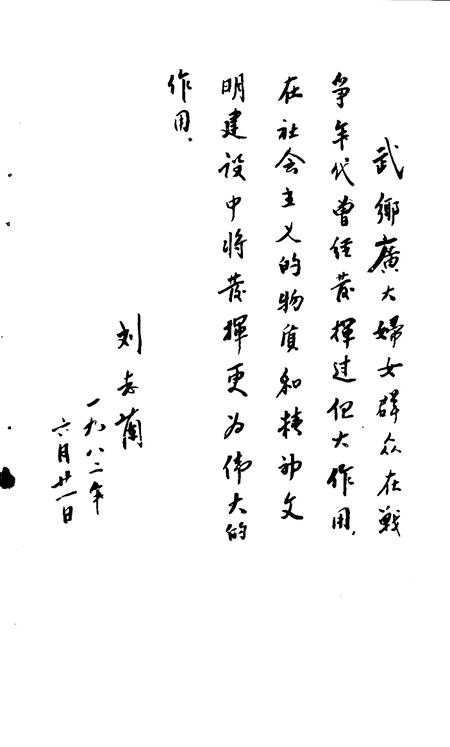 武鄉廣大婦女群众在戰
争年代曾经发揮过巨大作用，
在社会主义的物质和精神文
明建设中将发揮更为伟大的
作用．
刘志蘭
一九八二年
六月廿一日